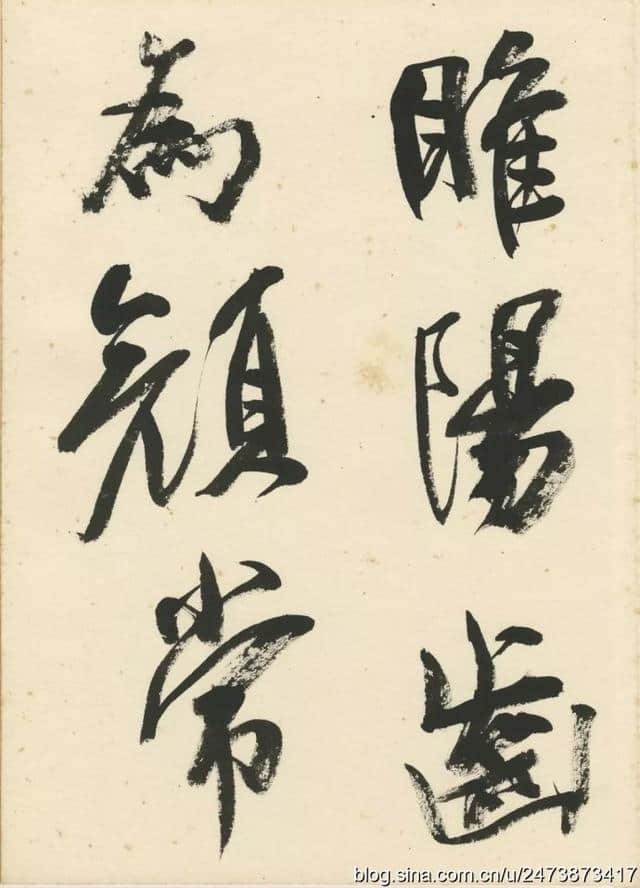 睢陽齒
為顏常
blog.sina.com.cn/u/2473873417